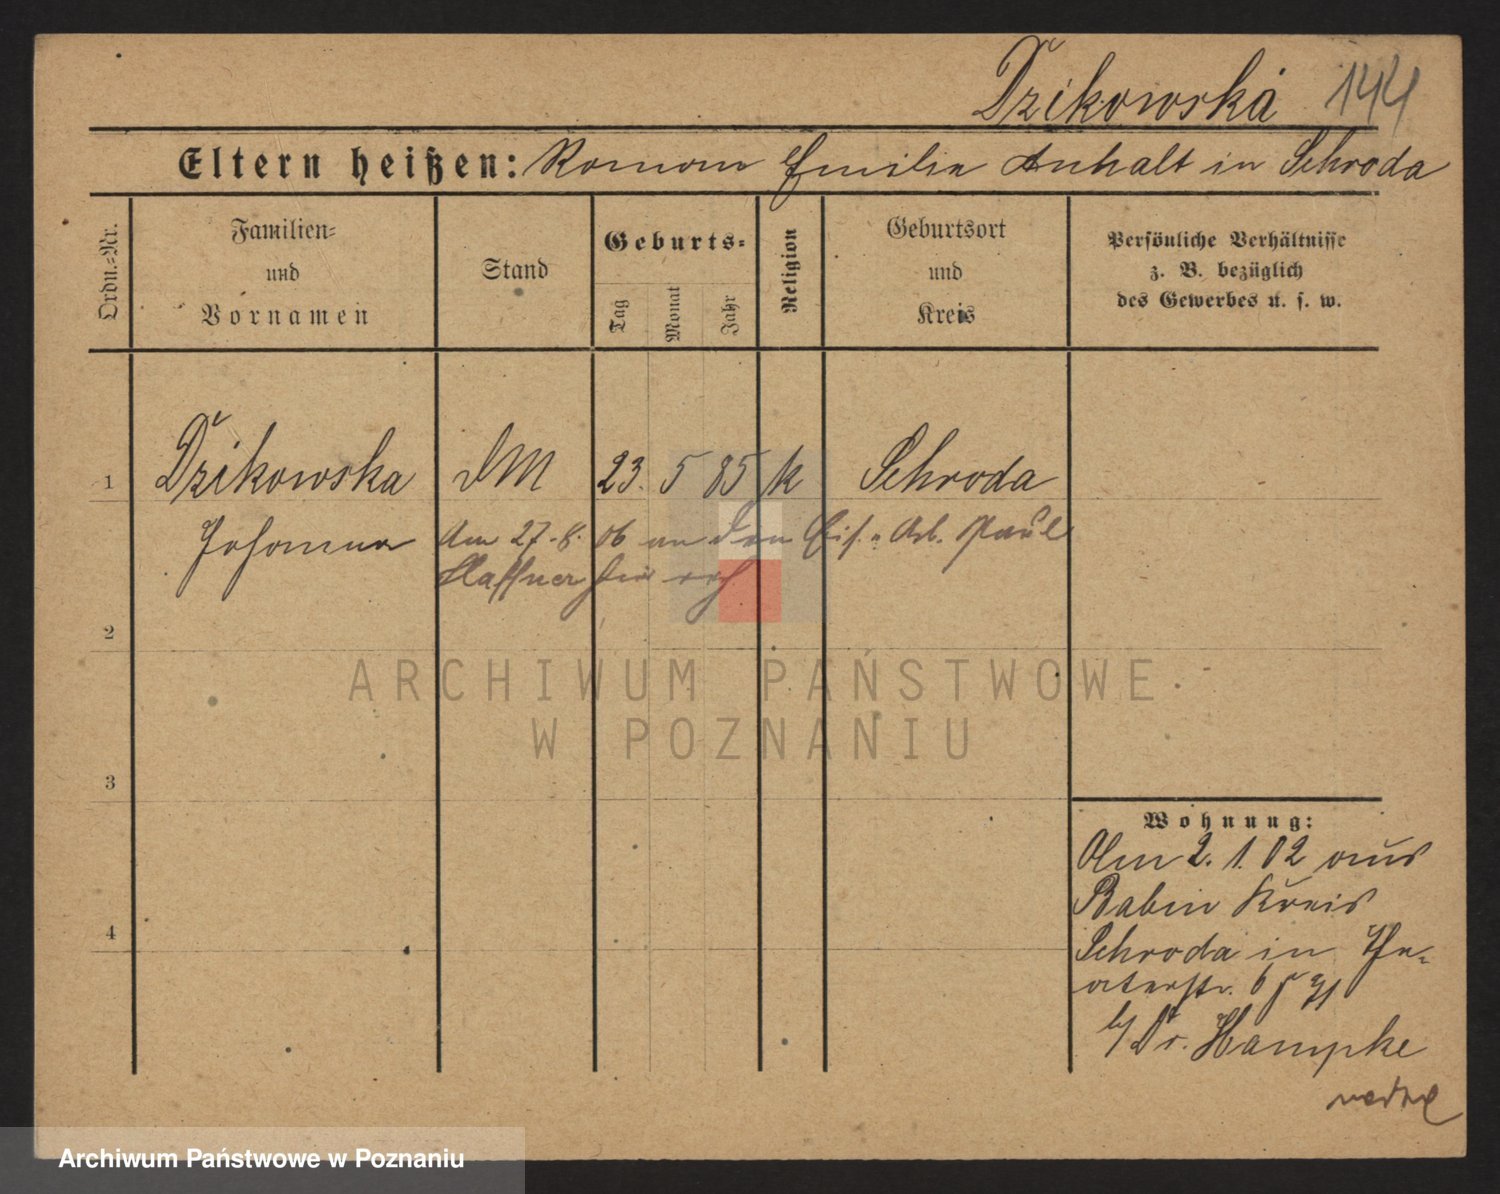 Dzikowska 144
Eltern heißen: Roman Emilie Anhalt in Schroda
Ordn.=Nr.
Familien=
und
Vornamen
Stand
Geburts=
Tag
Monat
Jahr
Religion
Geburtsort
und
Kreis
Persönliche Verhältnisse
z. B. bezüglich
des Gewerbes u. s. w.
1 Dzikowska DM 23. 5 85 k Schroda
Johanna Am 27. 8. 06 an den Eis. Arb. Paul
Haffner
2
3
4
Wohnung:
Am 2. 1. 02 aus
Babin Kreis
Schroda in The=
aterstr. 6
b/ Dr. Hampke
ARCHIWUM PAŃSTWOWE
W POZNANIU
Archiwum Państwowe w Poznaniu